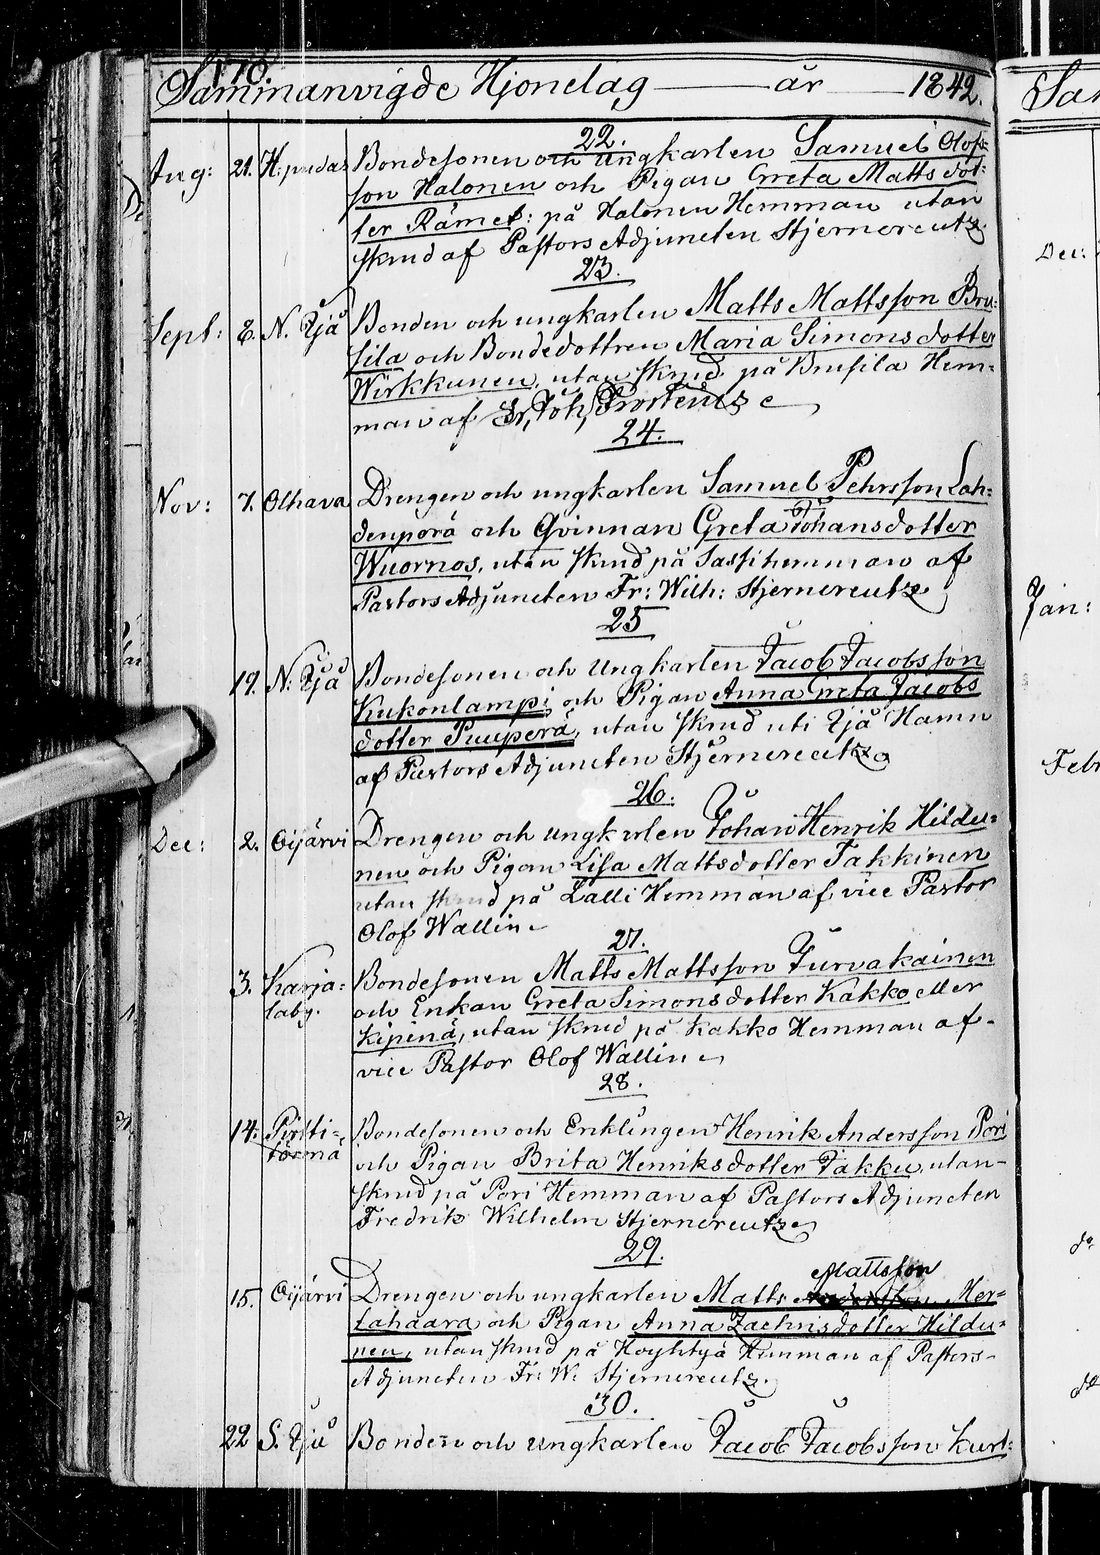 170.
Sammanvigde Hjonelag — år — 1842.
22.
Aug: 21. H:pudas Bondesonen och Ungkarlen Samuel Olofs-
son Halonen och Pigan Greta Mattsdot-
ter Rämet: på Halonen Hemman utan
skrud af Pastors Adjuncten Stjernereutz.
23.
Sept: 8. N. Ijå Bonden och ungkarlen Matts Mattsson Bru-
sila och Bondedottren Maria Simonsdotter
Wirkkunen, utan skrud på Brusila Hem-
man af Joh,
24.
Nov: 7. Olhava Drengen och ungkarlen Samuel Pehrsson Lah-
denperä och Qvinnan Greta Johansdotter
Wuornos, utan skrud på Sassi hemman af
Pastors Adjuncten Fr: Wilh: Stjernereutz
25
19. N: Ijå Bondesonen och Ungkarlen Jacob Jacobsson
Kukonlampi och Pigan Anna Greta Jacobs
dotter Puuperä, utan skrud uti Ijå Hamn
af Pastors Adjuncten Stjernereutz
26.
Dec: 2. Oijärvi Drengen och ungkarlen Johan Henrik Hildu-
nen och Pigan Lisa Mattsdotter Takkinen
utan skrud på Lalli Hemman af vice Pastor
Olof Wallin
27.
3. Karja- Bondesonen Matts Mattsson Turvakainen
laby. och Enkan Greta Simonsdotter Kakko eller
Kipinä, utan skrud på Kakko Hemman af
vice Pastor Olof Wallin
28.
14. Pirtti- Bondesonen och Enklingen Henrik Andersson Pori
törmä och Pigan Brita Henriksdotter Takku utan
skrud på Pori Hemman af Pastors Adjuncten
Fredrik Wilhelm Stjernereutz
29.
Mattsson
15. Oijärvi Drengen och ungkarlen Matts Mer-
tahaara och Pigan Anna Zachrisdotter Hildu-
nen, utan skrud på Höyhtyä Hemman af Pastors-
Adjuncten Fr: W: Stjernereutz.
30.
22 S. Ijå Bonden och Ungkarlen Jacob Jacobsson Kurt-
Sam
Dec:
Jan:
Febr